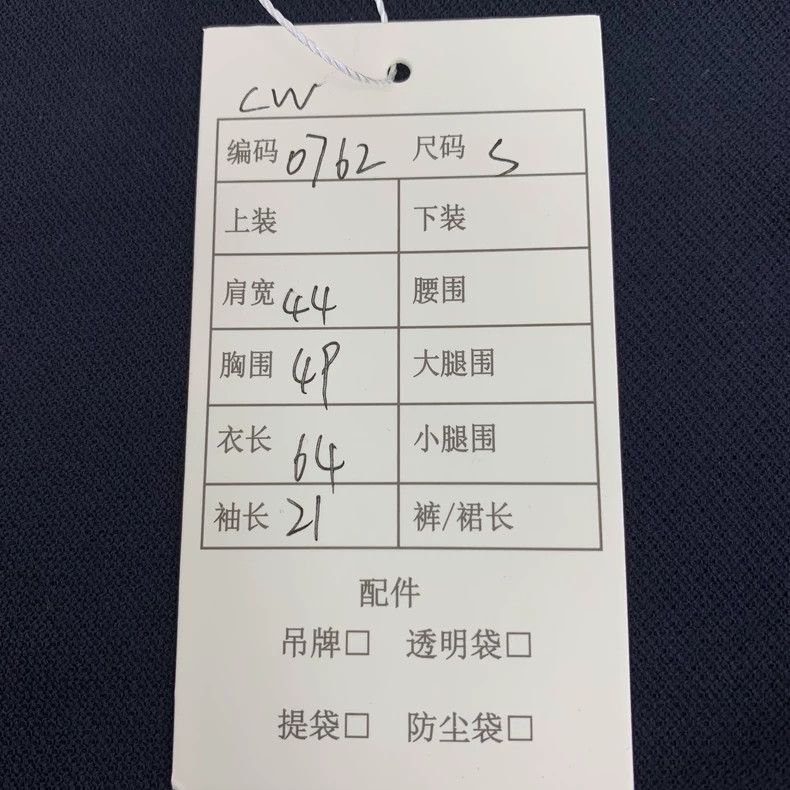 CW
编码 0762 尺码 S
上装 下装
肩宽 44 腰围
胸围 49 大腿围
衣长 64 小腿围
袖长 21 裤/裙长
配件
吊牌□ 透明袋□
提袋□ 防尘袋□